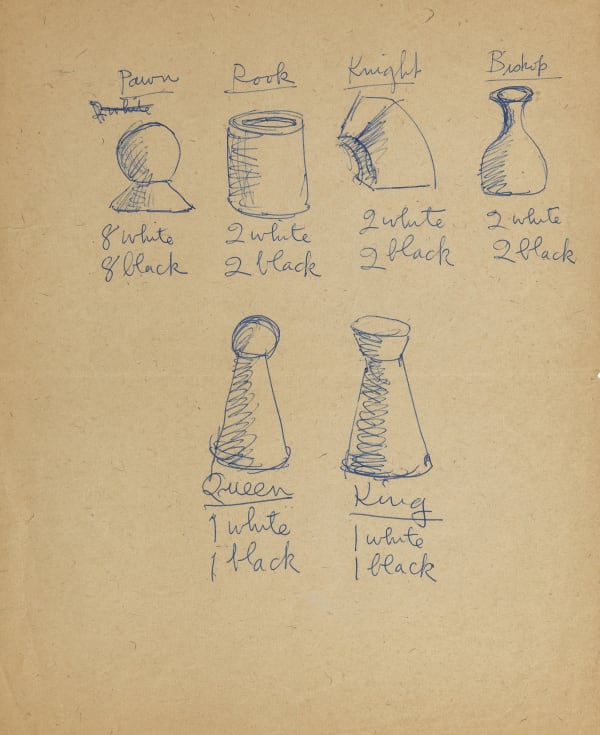 Pawn
8 white
8 black
Rook
2 white
2 black
Knight
2 white
2 black
Bishop
2 white
2 black
Queen
1 white
1 black
King
1 white
1 black